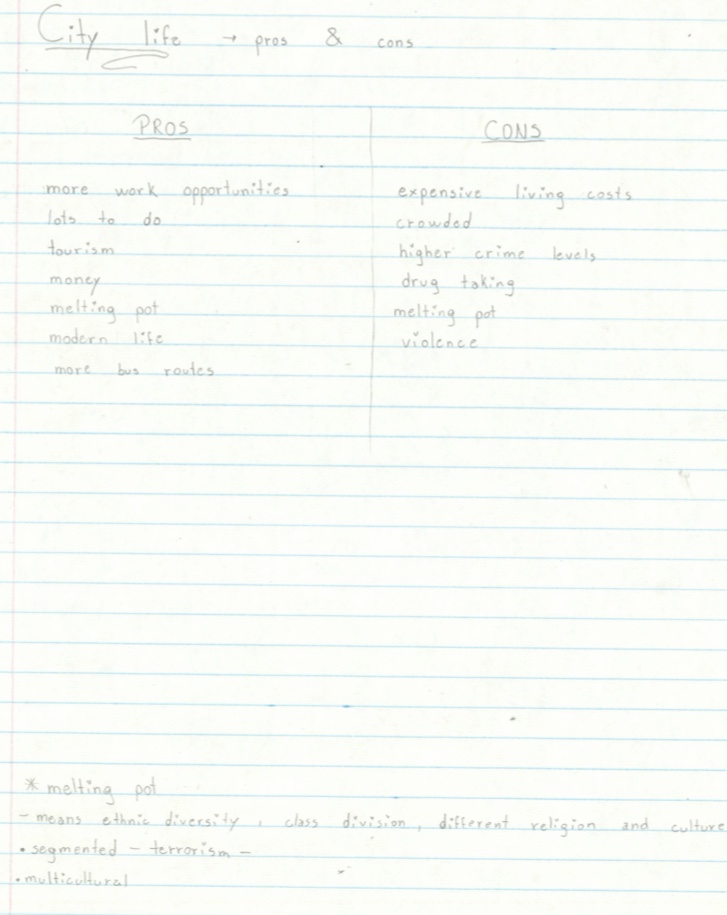 City life → pros & cons
PROS
more work opportunities
lots to do
tourism
money
melting pot
modern life
more bus routes
CONS
expensive living costs
crowded
higher crime levels
drug taking
melting pot
violence
* melting pot
- means ethnic diversity, class division, different religion and culture
• segmented - terrorism -
• multicultural